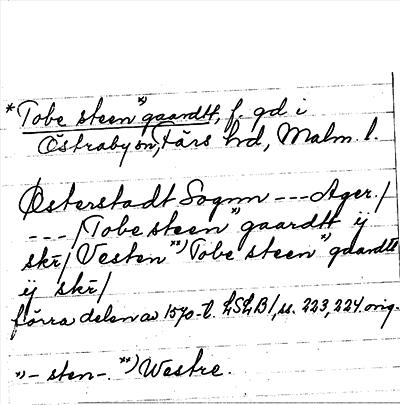 *Tobe steen*) gaardtt, f. gd i
Östraby sn, Färs hd, Malm. l.
Østerstadt Sognn --- Ager./
---/Tobe steen*) gaardtt ij
skr/ Vesten**) Tobe steen*) gaardtt
ij skr/
förra delen av 1570-t. LSLB1, ss. 223, 224 orig.
*) - sten -. **) Westre.